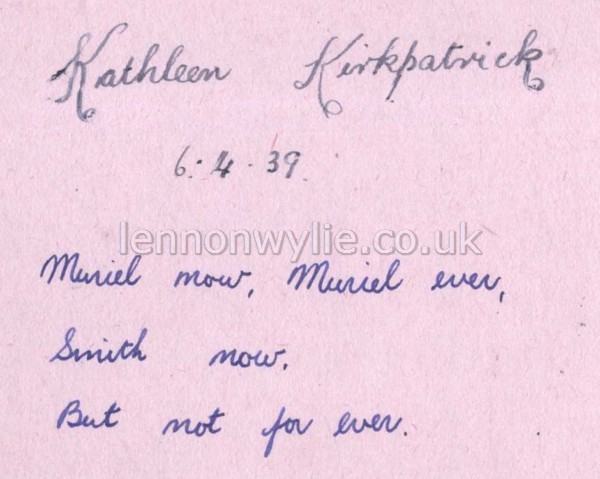 Kathleen Kirkpatrick
6.4.39
lennonwylie.co.uk
Muriel now, Muriel ever,
Smith now.
But not for ever.